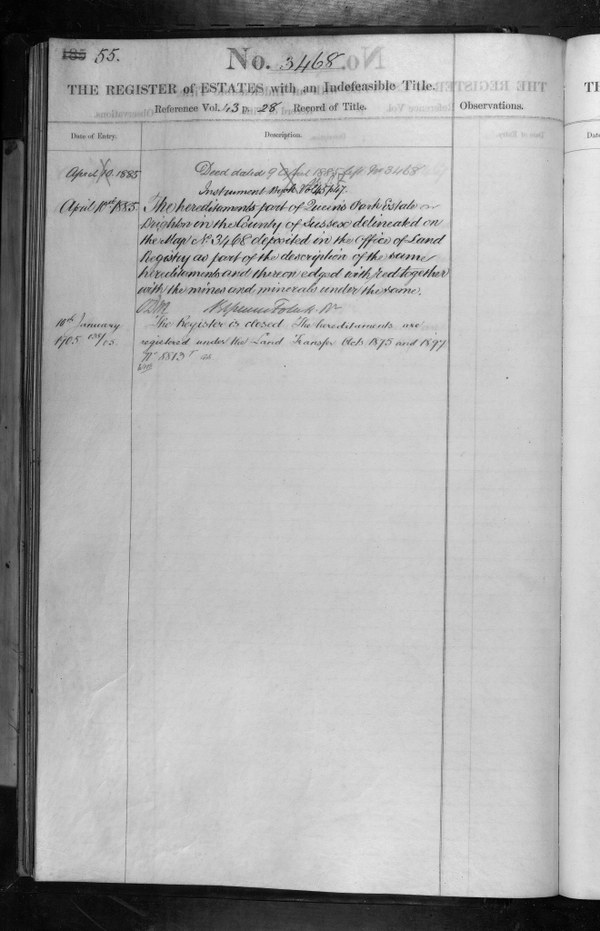 185 55.
No. 3468
THE REGISTER of ESTATES with an Indefeasible Title.
Reference Vol. 43 p. 28 Record of Title.
Observations.
Date of Entry.
Description.
April 10. 1885
Deed dated 9 April 1885 3468
Instrument Book Vol 45 p 47.
April 10th 1885.
The hereditaments part of Queen's Park Estate
Brighton in the County of Sussex delineated on
the Map No. 3468 deposited in the Office of Land
Registry as part of the description of the same
hereditaments and thereon edged with red together
with the mines and minerals under the same.
10th January
1905
The Register is closed. The hereditaments are
registered under the Land Transfer Acts 1875 and 1897
No 8813